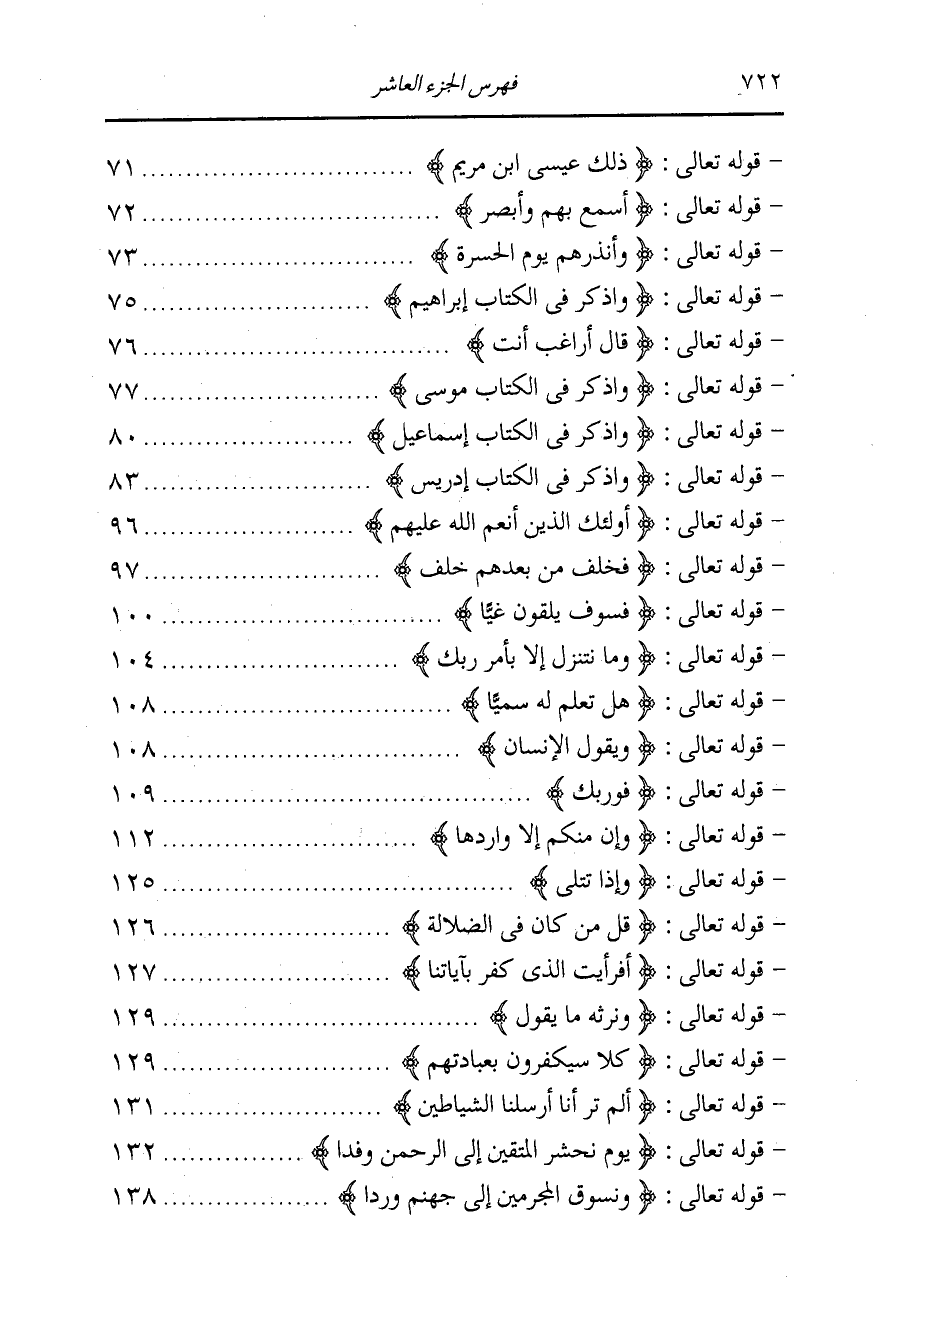 ٧٢٢ فهرس الجزء العاشر
– قوله تعالى : ﴿ ذلك عيسى ابن مريم ﴾ .............................. ٧١
– قوله تعالى : ﴿ أسمع بهم وأبصر ﴾ ................................. ٧٢
– قوله تعالى : ﴿ وأنذرهم يوم الحسرة ﴾ .............................. ٧٣
– قوله تعالى : ﴿ واذكر فى الكتاب إبراهيم ﴾ ......................... ٧٥
– قوله تعالى : ﴿ قال أراغب أنت ﴾ .................................. ٧٦
– قوله تعالى : ﴿ واذكر فى الكتاب موسى ﴾ .......................... ٧٧
– قوله تعالى : ﴿ واذكر فى الكتاب إسماعيل ﴾ ....................... ٨٠
– قوله تعالى : ﴿ واذكر فى الكتاب إدريس ﴾ ......................... ٨٣
– قوله تعالى : ﴿ أولئك الذين أنعم الله عليهم ﴾ ....................... ٩٦
– قوله تعالى : ﴿ فخلف من بعدهم خلف ﴾ .......................... ٩٧
– قوله تعالى : ﴿ فسوف يلقون غيًّا ﴾ ............................... ١٠٠
– قوله تعالى : ﴿ وما نتنزل إلا بأمر ربك ﴾ .......................... ١٠٤
– قوله تعالى : ﴿ هل تعلم له سميًّا ﴾ ................................ ١٠٨
– قوله تعالى : ﴿ ويقول الإنسان ﴾ ................................. ١٠٨
– قوله تعالى : ﴿ فوربك ﴾ ......................................... ١٠٩
– قوله تعالى : ﴿ وإن منكم إلا واردها ﴾ ............................ ١١٢
– قوله تعالى : ﴿ وإذا تتلى ﴾ ....................................... ١٢٥
– قوله تعالى : ﴿ قل من كان فى الضلالة ﴾ ......................... ١٢٦
– قوله تعالى : ﴿ أفرأيت الذى كفر بآياتنا ﴾ ......................... ١٢٧
– قوله تعالى : ﴿ ونرثه ما يقول ﴾ ................................... ١٢٩
– قوله تعالى : ﴿ كلا سيكفرون بعبادتهم ﴾ ......................... ١٢٩
– قوله تعالى : ﴿ ألم تر أنا أرسلنا الشياطين ﴾ ........................ ١٣١
– قوله تعالى : ﴿ يوم نحشر المتقين إلى الرحمن وفدا ﴾ ................ ١٣٢
– قوله تعالى : ﴿ ونسوق المجرمين إلى جهنم وردا ﴾ ................... ١٣٨